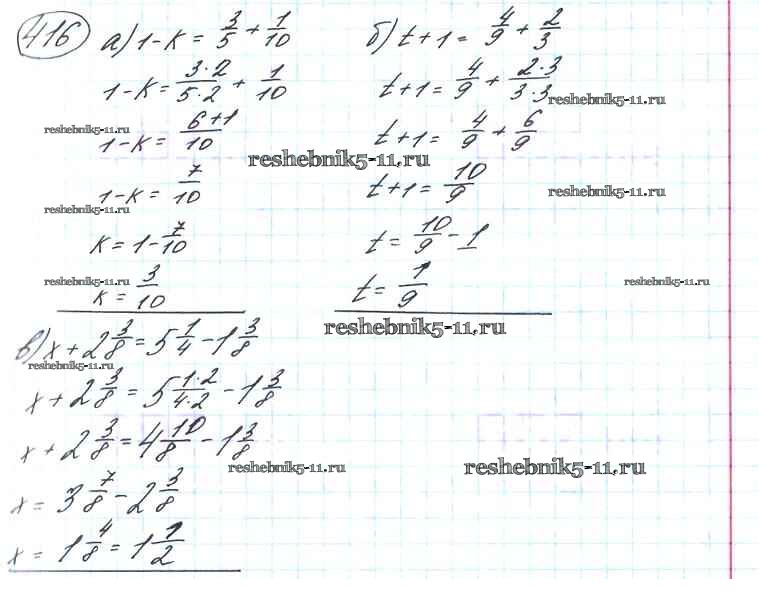 416 а) 1-к = 3/5 + 1/10
1-к = 3·2/5·2 + 1/10
1-к = 6+1/10
1-к = 7/10
к = 1 - 7/10
к = 3/10
б) t+1 = 4/9 + 2/3
t+1 = 4/9 + 2·3/3·3
t+1 = 4/9 + 6/9
t+1 = 10/9
t = 10/9 - 1
t = 1/9
в) x + 2 3/8 = 5 1/4 - 1 3/8
x + 2 3/8 = 5 1·2/4·2 - 1 3/8
x + 2 3/8 = 4 10/8 - 1 3/8
x = 3 7/8 - 2 3/8
x = 1 4/8 = 1 1/2
reshebnik5-11.ru
reshebnik5-11.ru
reshebnik5-11.ru
reshebnik5-11.ru
reshebnik5-11.ru
reshebnik5-11.ru
reshebnik5-11.ru
reshebnik5-11.ru
reshebnik5-11.ru
reshebnik5-11.ru
reshebnik5-11.ru